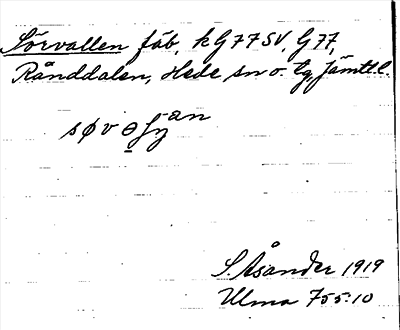 Sörvallen fäb. k G77SV, G77,
Rånddalen, Hede sn o. tg, Jämtl. l.
S. Åsander 1919
Ulma 755:10